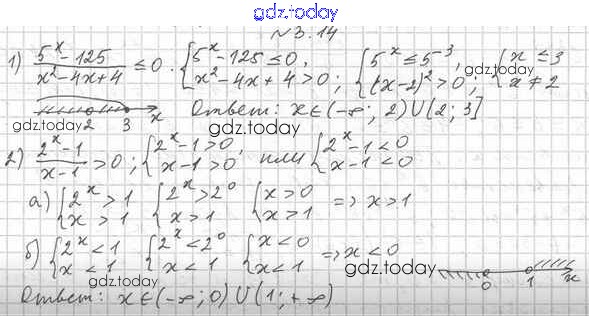 gdz.today
№3.14
1) (5^x-125)/(x²-4x+4) ≤ 0. {5^x-125≤0, x²-4x+4>0; {5^x≤5^3, (x-2)²>0; {x≤3 x≠2
gdz.today 2 3 x Ответ: x∈(-∞; 2)U(2; 3]
gdz.today
2) (2^x-1)/(x-1) > 0; {2^x-1>0, x-1>0 или {2^x-1<0 x-1<0
а) {2^x>1 x>1 {2^x>2^0 x>1 {x>0 x>1 => x>1
б) {2^x<1 x<1 {2^x<2^0 x<1 {x<0 x<1 => x<0
gdz.today gdz.today 0 1 x
Ответ: x∈(-∞; 0)U(1; +∞)